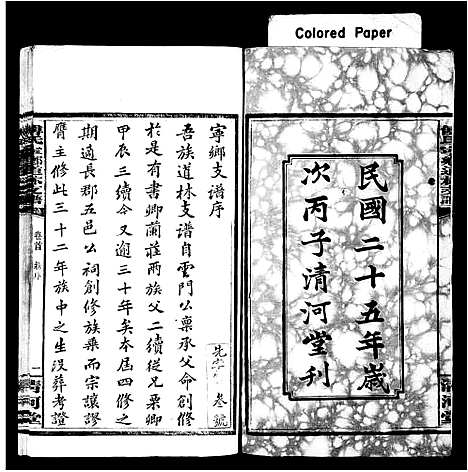 Colored Paper
民國二十五年歲
次丙子清河堂刊
清河堂
先字 叁號
寧鄉支譜序
吾族道林支譜自雲門公稟承父命創修
於是有書卿蘭莊兩族父二續從兄栗卿
甲辰三續令又逾三十年矣本屆四修之
期適長郡五邑公祠創修族乘而宗讓謬
膺主修此三十二年族中之生沒葬考證
卷首 序
一
清河堂